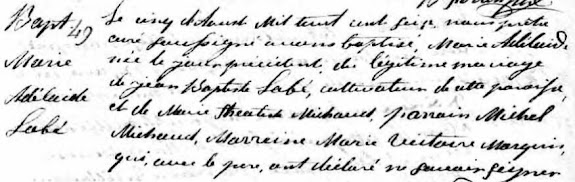 Bapt. 49
Marie
Adélaide
Labé
Le cinq d'Aoust mil huit cent seize, nous prêtre
curé soussigné avons baptisé, Marie Adélaide
née le jour précédent, du légitime mariage
de jean Baptiste Labé, cultivateur de cette paroisse,
et de Marie Michaud, parrain Michel
Michaud, Marreine Marie Victoire Marquis,
qui, avec le pere, ont déclaré ne savoir signer